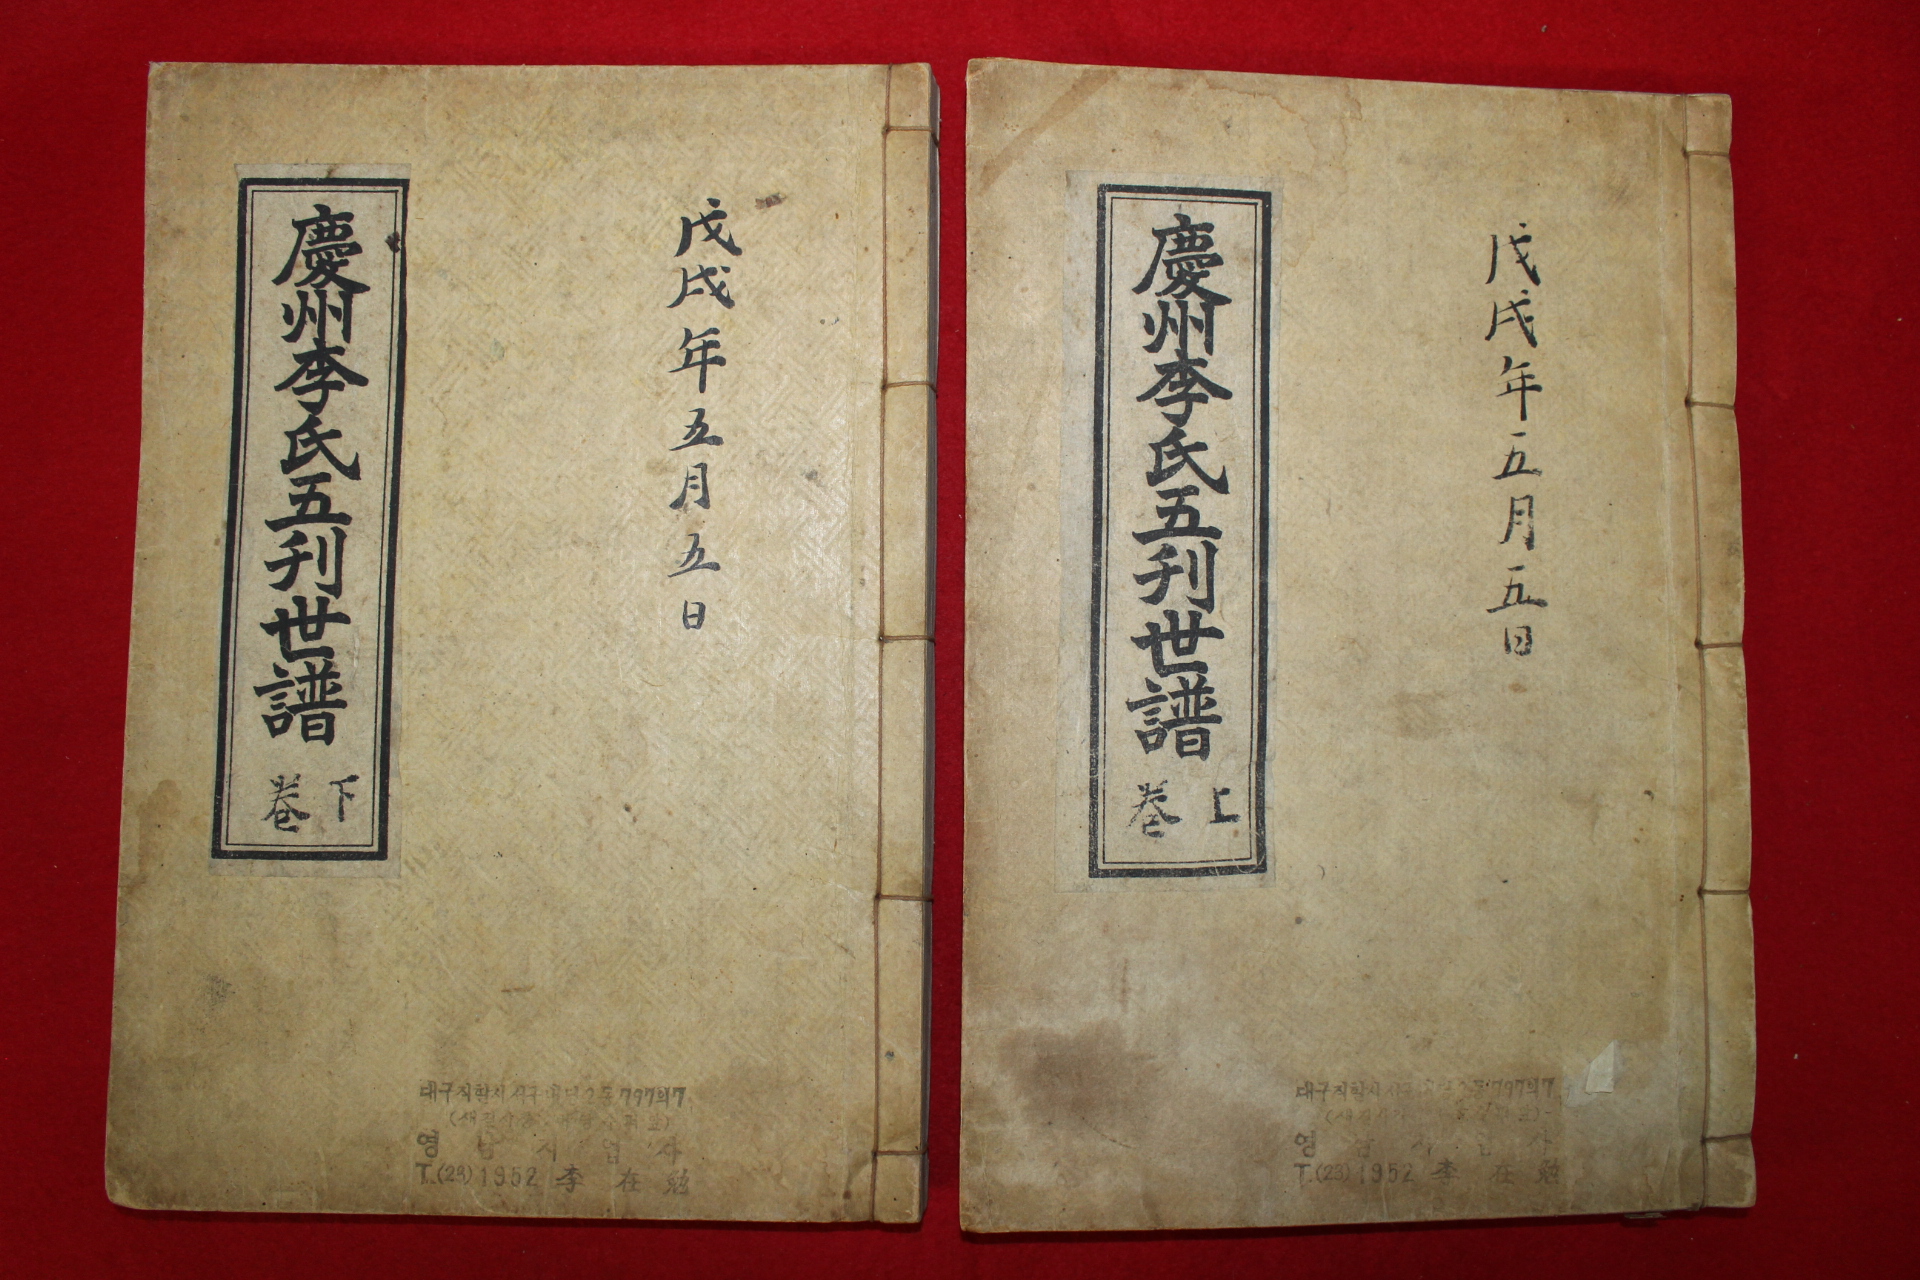 慶州李氏五刊世譜
卷下
戊戌年五月五日
대구직할시 서구 2동 797의7
영남지업사
T.(23)1952 李在勉
慶州李氏五刊世譜
卷上
戊戌年五月五日
대구직할시 서구 797의7
영남지업사
T.(23)1952 李在勉